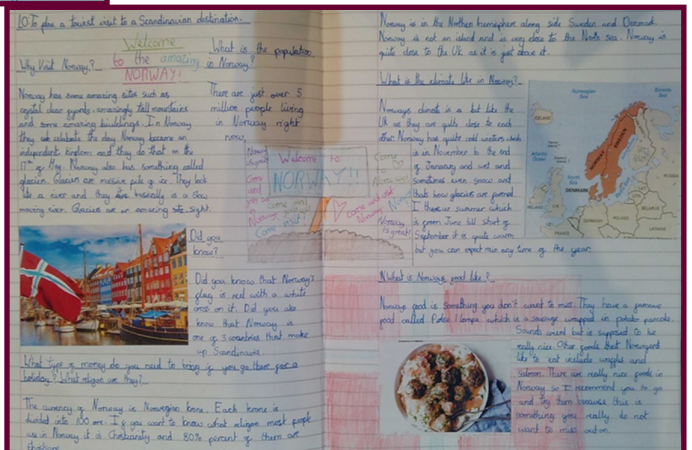 LO: To plan a tourist visit to a Scandinavian destination.
Welcome
to the amazing
NORWAY!
Why Visit Norway?
Norway has some amazing sites such as
crystal clear fjords, amazingly tall mountains
and some amazing buildings. In Norway
they celebrate the day Norway became an
independent kingdom and they do that on the
17th of May. Norway also has something called
glaciers. Glaciers are massive pile of ice. They look
like a river and they are basically is a slow
moving river. Glaciers are an amazing site sight.
What is the population
in Norway?
There are just over 5
million people living
in Norway right
now.
Welcome to
NORWAY!!
Come and visit
Norway
Norway
is great!
Did you
know?
Did you know that Norway's
flag is red with a white
cross on it. Did you also
know that Norway is
one of 3 countries that make
up Scandinavia.
What type of money do you need to bring if you go there for a
holiday? What religion are they?
The currency of Norway is Norwegian krone. Each krone is
divided into 100 ore. If you want to know what religion most people
use in Norway it is Christianity and 80% percent of them are
Christians.
Norway is in the Northen hemisphere along side Sweden and Denmark.
Norway is not an island and is very close to the North sea. Norway is
quite close to the UK as it is just above it.
What is the climate like in Norway?
Norways climate is a bit like the
UK as they are quite close to each
other. Norway has quite cold winters which
is in November to the end
of January and wet and
sometimes even snow and
thats how glaciers are formed.
there is summer which
is from June till start of
September it is quite warm
but you can expect rain any time of the year.
Norwegian
Sea
Barents
Sea
ICELAND
NORWAY
SWEDEN
FINLAND
RUSSIA
Atlantic
Ocean
North
Sea
Baltic
Sea
DENMARK
POLAND
BELARUS
GERMANY
UKRAINE
What is Norways food like?
Norways food is something you don't want to miss. They have a famous
food called Polse I lompe which is a sausage wrapped in potato pancake.
Sounds weird but is supposed to be
really nice. Other foods that Norwegians
like to eat include waffles and
salmon. There are really nice foods in
Norway so I recommend you to go
and try them because this is
something you really do not
want to miss out on.